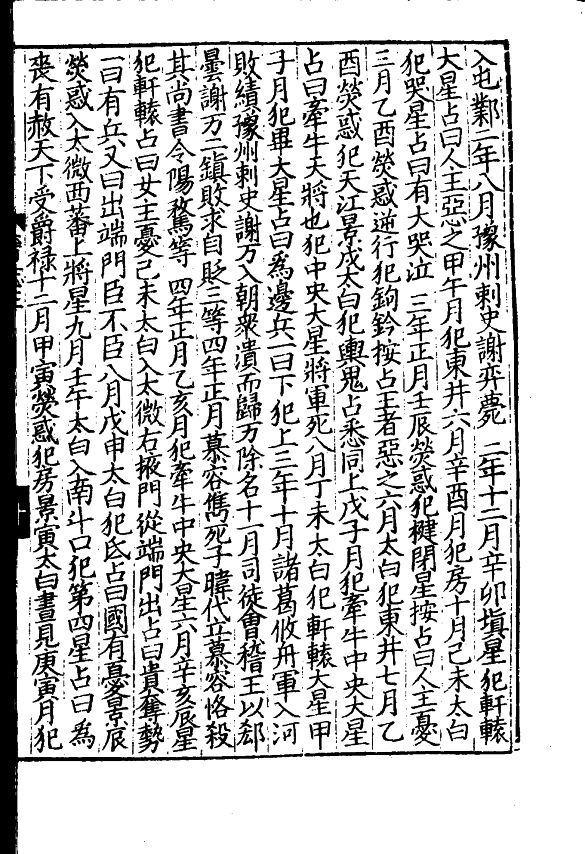 入屯鄴二年八月豫州刺史謝弈薨　二年十二月辛卯塡星犯軒轅
大星占曰人主惡之甲午月犯東井六月辛酉月犯房十月己未太白
犯哭星占曰有大哭泣　三年正月壬辰熒惑犯楗閉星按占曰人主憂
三月乙酉熒惑逆行犯鉤鈐按占王者惡之六月太白犯東井七月乙
酉熒惑犯天江景戌太白犯輿鬼占悉同上戊子月犯牽牛中央大星
占曰牽牛天將也犯中央大星將軍死八月丁未太白犯軒轅大星甲
子月犯畢大星占曰爲邊兵一曰下犯上三年十月諸葛攸舟軍入河
敗績豫州刺史謝万入朝衆潰而歸万除名十一月司徒會稽王以郄
曇謝万二鎭敗求自貶三等四年正月慕容儁死子暐代立慕容恪殺
其尚書令陽騖等　四年正月乙亥月犯牽牛中央大星六月辛亥辰星
犯軒轅占曰女主憂己未太白入太微右掖門從端門出占曰貴奪勢
一曰有兵又曰出端門臣不臣八月戊申太白犯氐占曰國有憂景辰
熒惑入太微西蕃上將星九月壬午太白入南斗口犯第四星占曰爲
喪有赦天下受爵祿十二月甲寅熒惑犯房景寅太白晝見庚寅月犯